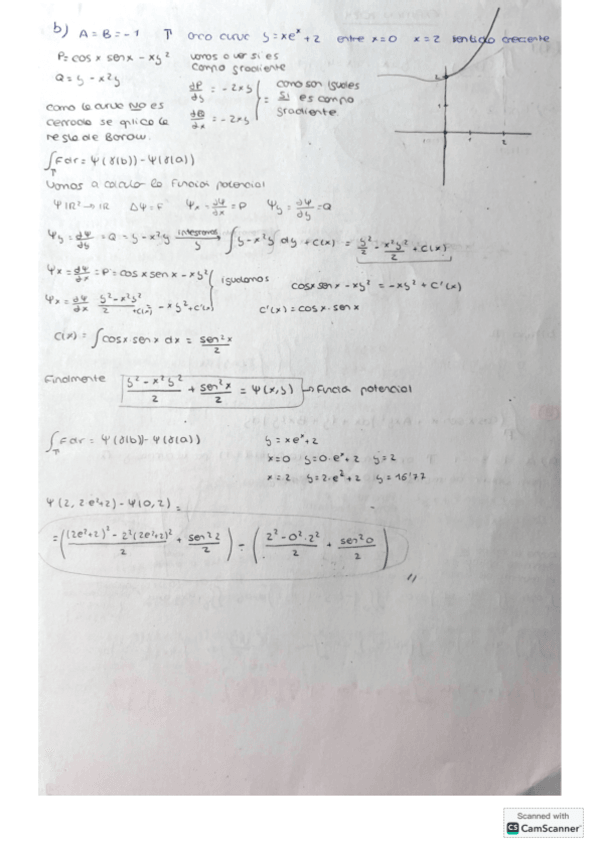 b) A = B = -1 T arco curva y = xe^x + 2 entre x=0 x=2 sentido creciente
P = cos x sen x - xy² vamos a ver si es
campo gradiente
Q = y - x²y
dP/dy = -2xy como son iguales
dQ/dx = -2xy sí es campo
gradiente.
como la curva NO es
cerrada se aplica la
regla de Barow.
∫_T Fdr = Ψ(γ(b)) - Ψ(γ(a))
Vamos a calcular la función potencial
Ψ IR² → IR ΔΨ = F Ψx = dΨ/dx = P Ψy = dΨ/dy = Q
Ψy = dΨ/dy = Q = y - x²y integramos y → ∫ y - x²y dy + C(x) = y²/2 - x²y²/2 + C(x)
Ψx = dΨ/dx = P = cos x sen x - xy² igualamos cosx senx - xy² = -xy² + C'(x)
Ψx = dΨ/dx (y² - x²y²)/2 + C(x) = -xy² + C'(x) C'(x) = cosx · senx
C(x) = ∫ cosx senx dx = sen²x/2
Finalmente (y² - x²y²)/2 + sen²x/2 = Ψ(x,y) → Función potencial
∫_T Fdr = Ψ(γ(b)) - Ψ(γ(a)) y = xe^x + 2
x=0 y=0·e^x+2 y=2
x=2 y=2·e²+2 y=16'77
Ψ(2, 2e²+2) - Ψ(0,2) =
= (((2e²+2)² - 2²(2e²+2)²)/2 + sen²2/2) - ((2² - 0²·2²)/2 + sen²0/2)
Scanned with
CS CamScanner